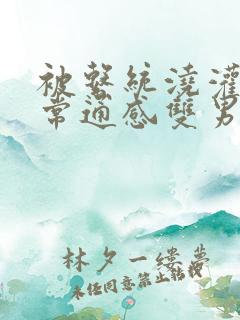 被繫統澆灌
常適感雙男
林夕一縷夢
未經同意禁止轉載